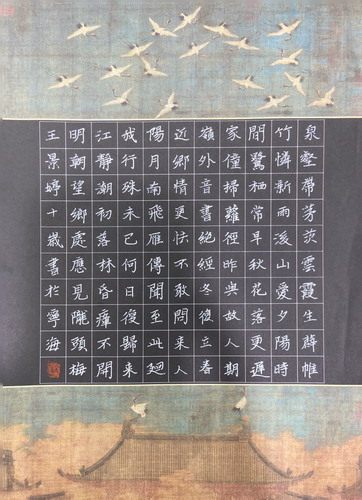 泉壑帶茅茨雲霞生薜帷
竹憐新雨後山愛夕陽時
閒鷺栖常早秋花落更遲
家僮掃蘿徑昨與故人期
嶺外音書絕經冬復立春
近鄉情更怯不敢問來人
陽月南飛雁傳聞至此迴
我行殊未已何日復歸來
江靜潮初落林昏瘴不開
明朝望鄉處應見隴頭梅
王景婷十歲書於寧海